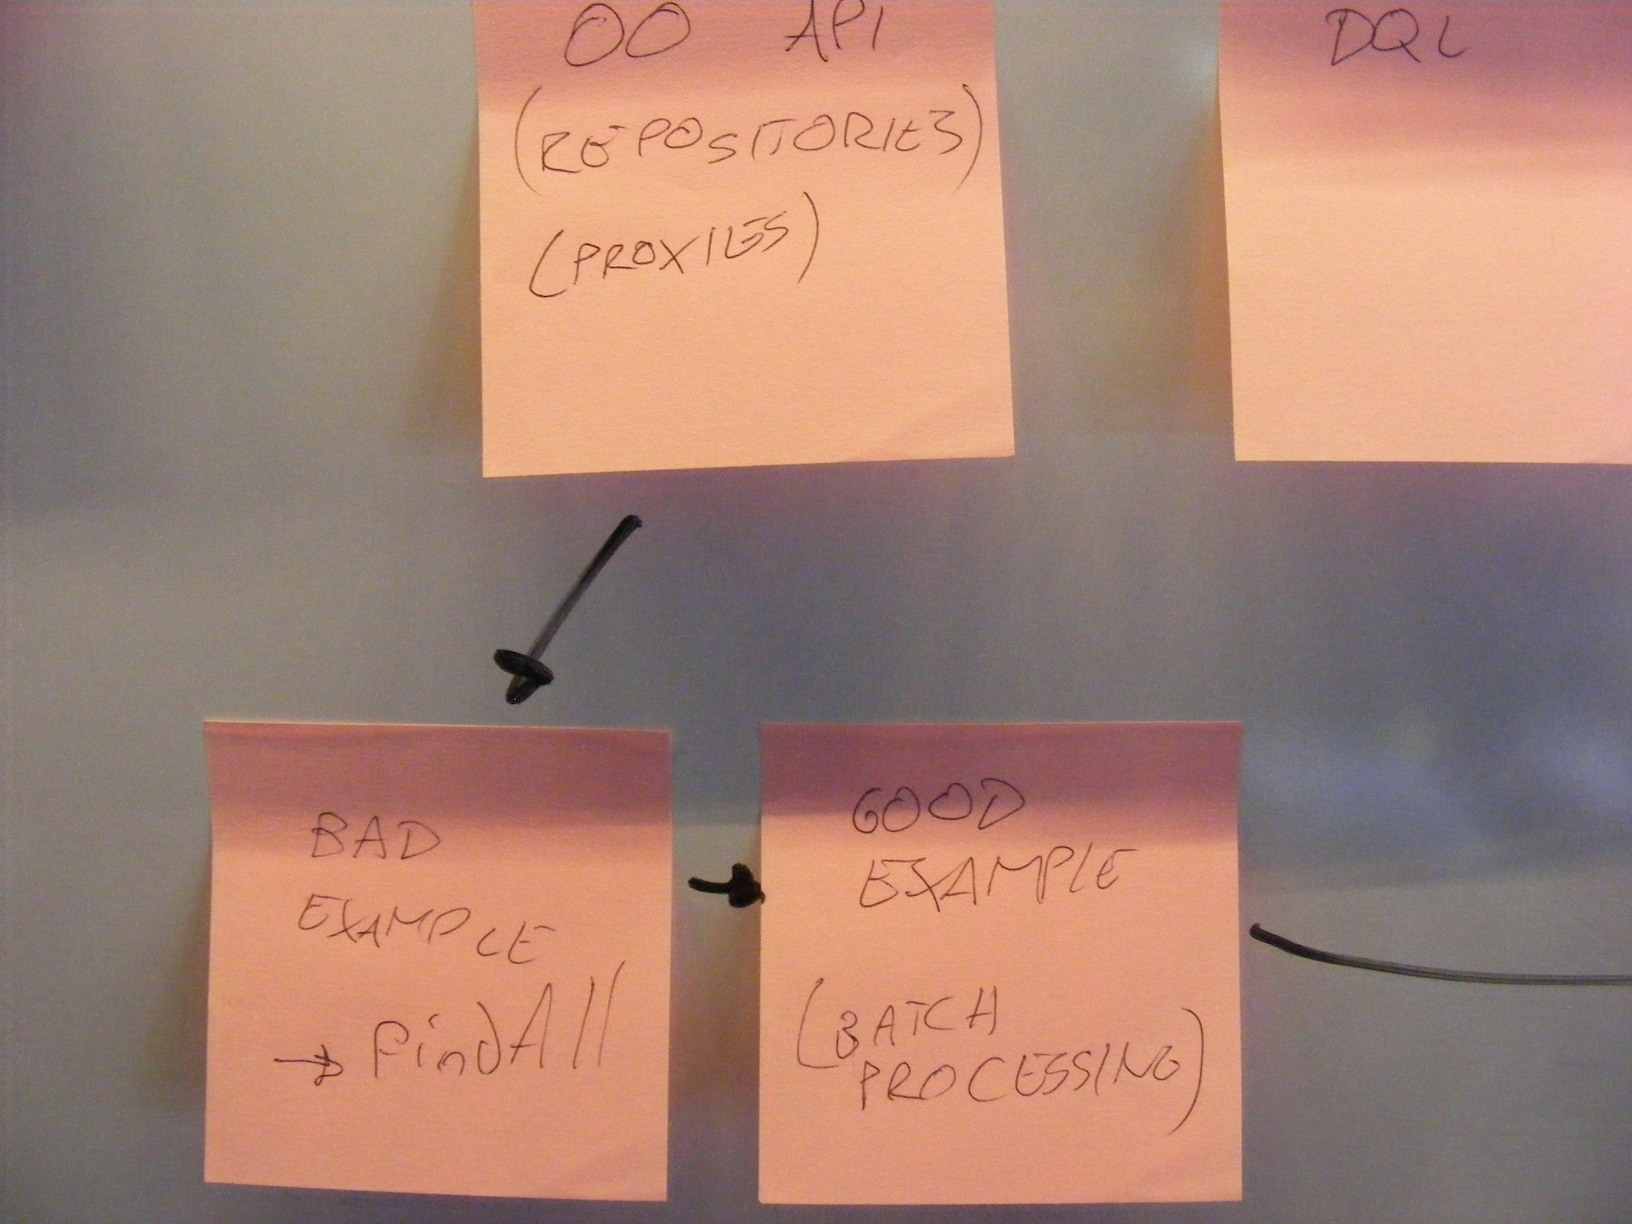 OO API
(REPOSITORIES)
(PROXIES)
DQL
BAD
EXAMPLE
→ findAll
GOOD
EXAMPLE
(BATCH
PROCESSING)